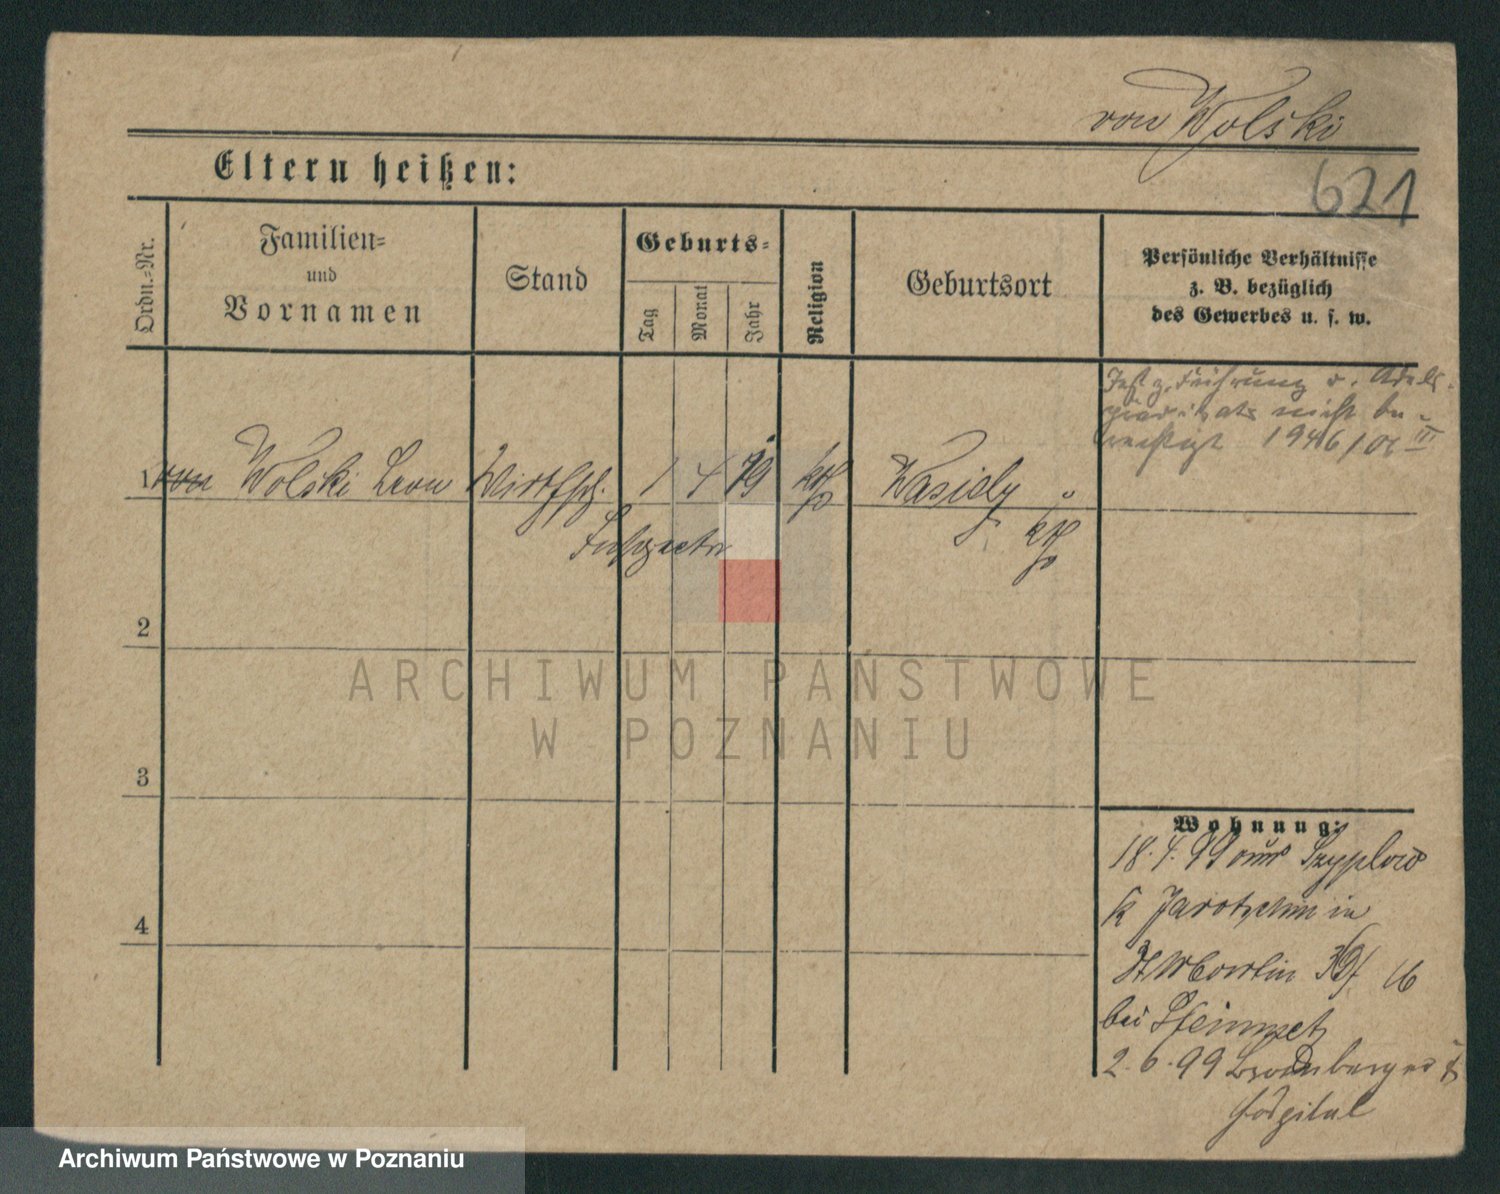 von Wolski
621
Eltern heißen:
Ordn.-Nr.
Familien-
und
Vornamen
Stand
Geburts-
Tag
Monat
Jahr
Religion
Geburtsort
Persönliche Verhältnisse
z. B. bezüglich
des Gewerbes u. s. w.
Führung d. Adels-
prädikats nicht be-
rechtigt 1946/01 III
1 von Wolski Leon Wirthsch. 1 4 79 kth
Inspector
2
3
4
Wohnung:
18.4.99 aus
K Jarotschin in
bei
2.6.99 Bromberger
Hospital
ARCHIWUM PAŃSTWOWE
W POZNANIU
Archiwum Państwowe w Poznaniu